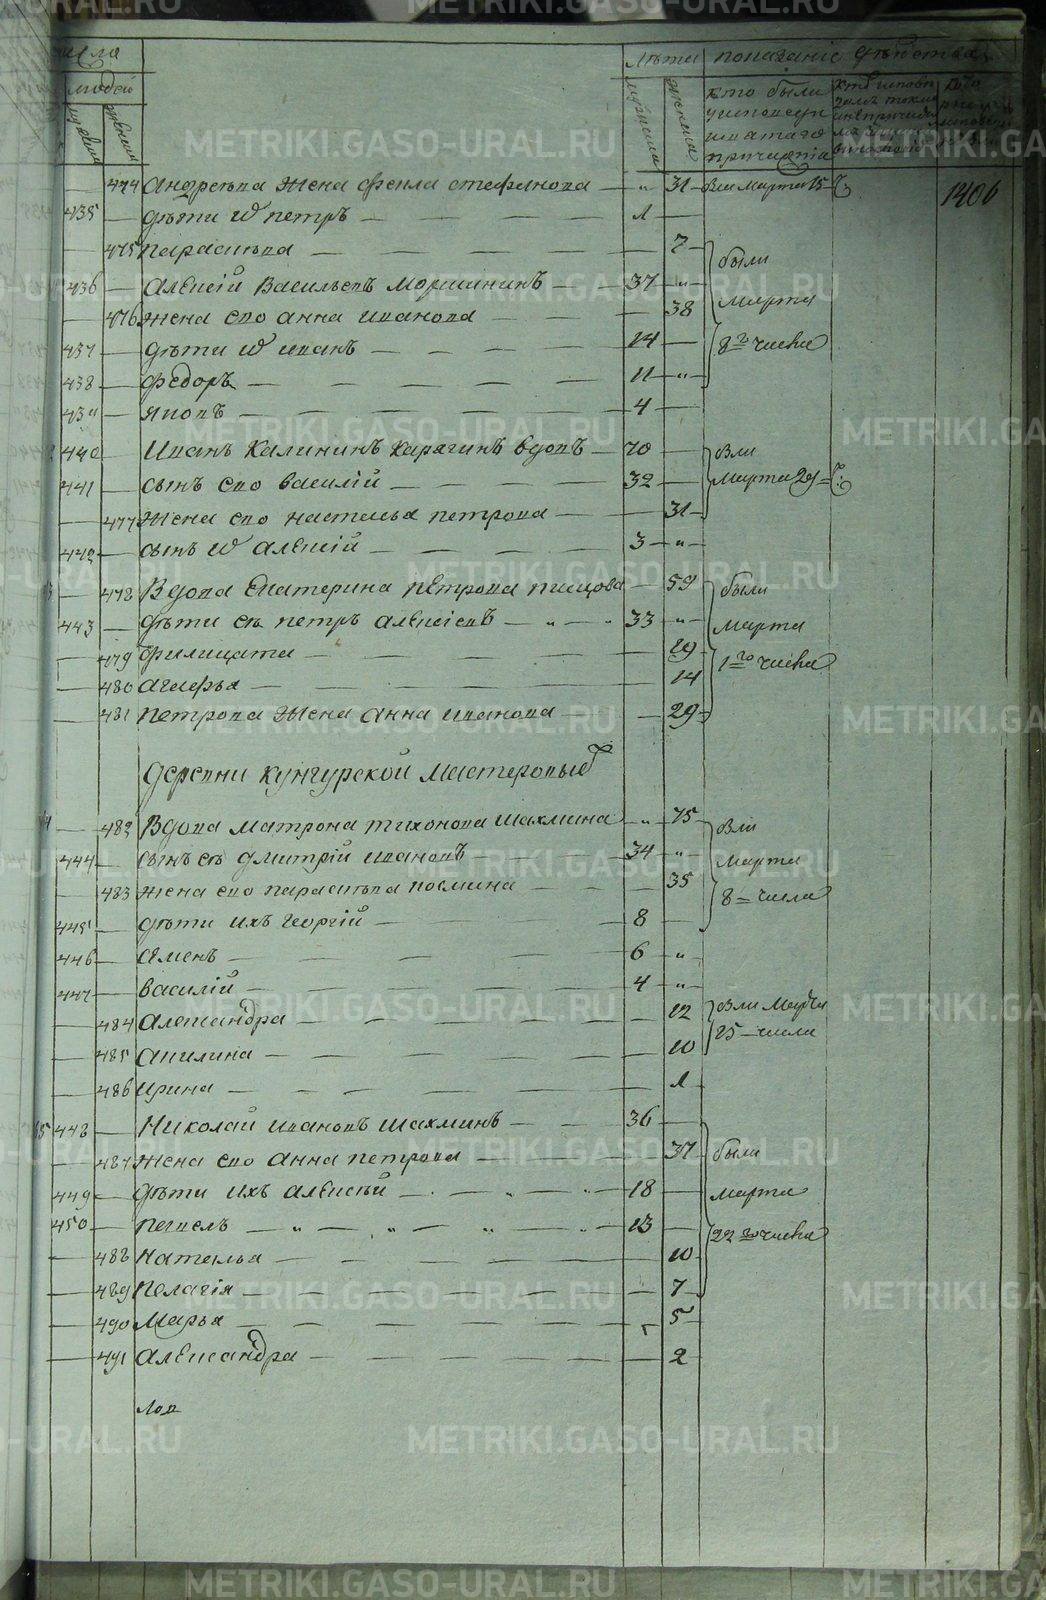 числа
людей
мужеска
женска
Лѣта
мужеска
женска
показаніе дѣйства
кто были
у исповѣди
и святаго
причастія
1406
474 Андреева жена Фекла Стефанова — " 31 Были Марта 15 г.
435 дѣти ихъ Петръ 1
475 Парасковья 7
436 Алексій Васильевъ Моршининъ 37 "
476 жена его Анна Иванова 38
437 дѣти ихъ Иванъ 14
438 Федоръ 11 "
были
Марта
8го числа
439 Яковъ 4
440 Иванъ Калининъ Карагинъ вдовъ 70
441 сынъ его Василій 32
477 жена его Наталья Петрова 31
Были
Марта 29
442 сынъ ихъ Алексій 3 "
478 Вдова Екатерина Петрова Пищова 59
443 дѣти ея Петръ Алексіевъ 33 "
479 Филицата 19
480 Агафья 14
481 Петрова жена Анна Иванова 29
были
Марта
1го числа
Деревни Кунгурской Мастеровые
482 Вдова Матрона Тихонова Шахмина " 75
444 сынъ ея Дмитрій Ивановъ 34 "
483 жена его Парасковья Космина 35
445 дѣти ихъ Георгій 8
Были
Марта
8 числа
446 Семенъ 6 "
447 Василій 4 "
484 Александра 12
485 Акилина 10
Были Марта
25 числа
486 Ирина 1
448 Николай Ивановъ Шахминъ 36
487 жена его Анна Петрова 37
449 дѣти ихъ Алексѣй 18
450 Павелъ 13
488 Наталья 10
489 Пелагія 7
были
Марта
22го числа
490 Марья 5
491 Александра 2
METRIKI.GASO-URAL.RU